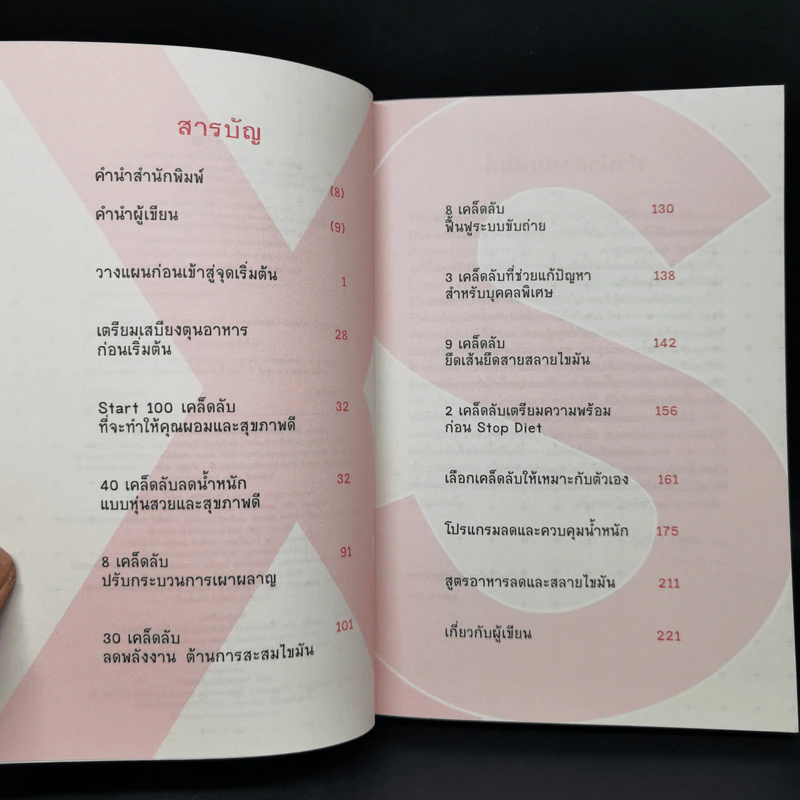 สารบัญ
คำนำสำนักพิมพ์ (8)
คำนำผู้เขียน (9)
วางแผนก่อนเข้าสู่จุดเริ่มต้น 1
เตรียมเสบียงตุนอาหาร 28
ก่อนเริ่มต้น
Start 100 เคล็ดลับ 32
ที่จะทำให้คุณผอมและสุขภาพดี
40 เคล็ดลับลดน้ำหนัก 32
แบบหุ่นสวยและสุขภาพดี
8 เคล็ดลับ 91
ปรับกระบวนการเผาผลาญ
30 เคล็ดลับ 101
ลดพลังงาน ต้านการสะสมไขมัน
8 เคล็ดลับ 130
ฟื้นฟูระบบขับถ่าย
3 เคล็ดลับที่ช่วยแก้ปัญหา 138
สำหรับบุคคลพิเศษ
9 เคล็ดลับ 142
ยืดเส้นยืดสายสลายไขมัน
2 เคล็ดลับเตรียมความพร้อม 156
ก่อน Stop Diet
เลือกเคล็ดลับให้เหมาะกับตัวเอง 161
โปรแกรมลดและควบคุมน้ำหนัก 175
สูตรอาหารลดและสลายไขมัน 211
เกี่ยวกับผู้เขียน 221
XS